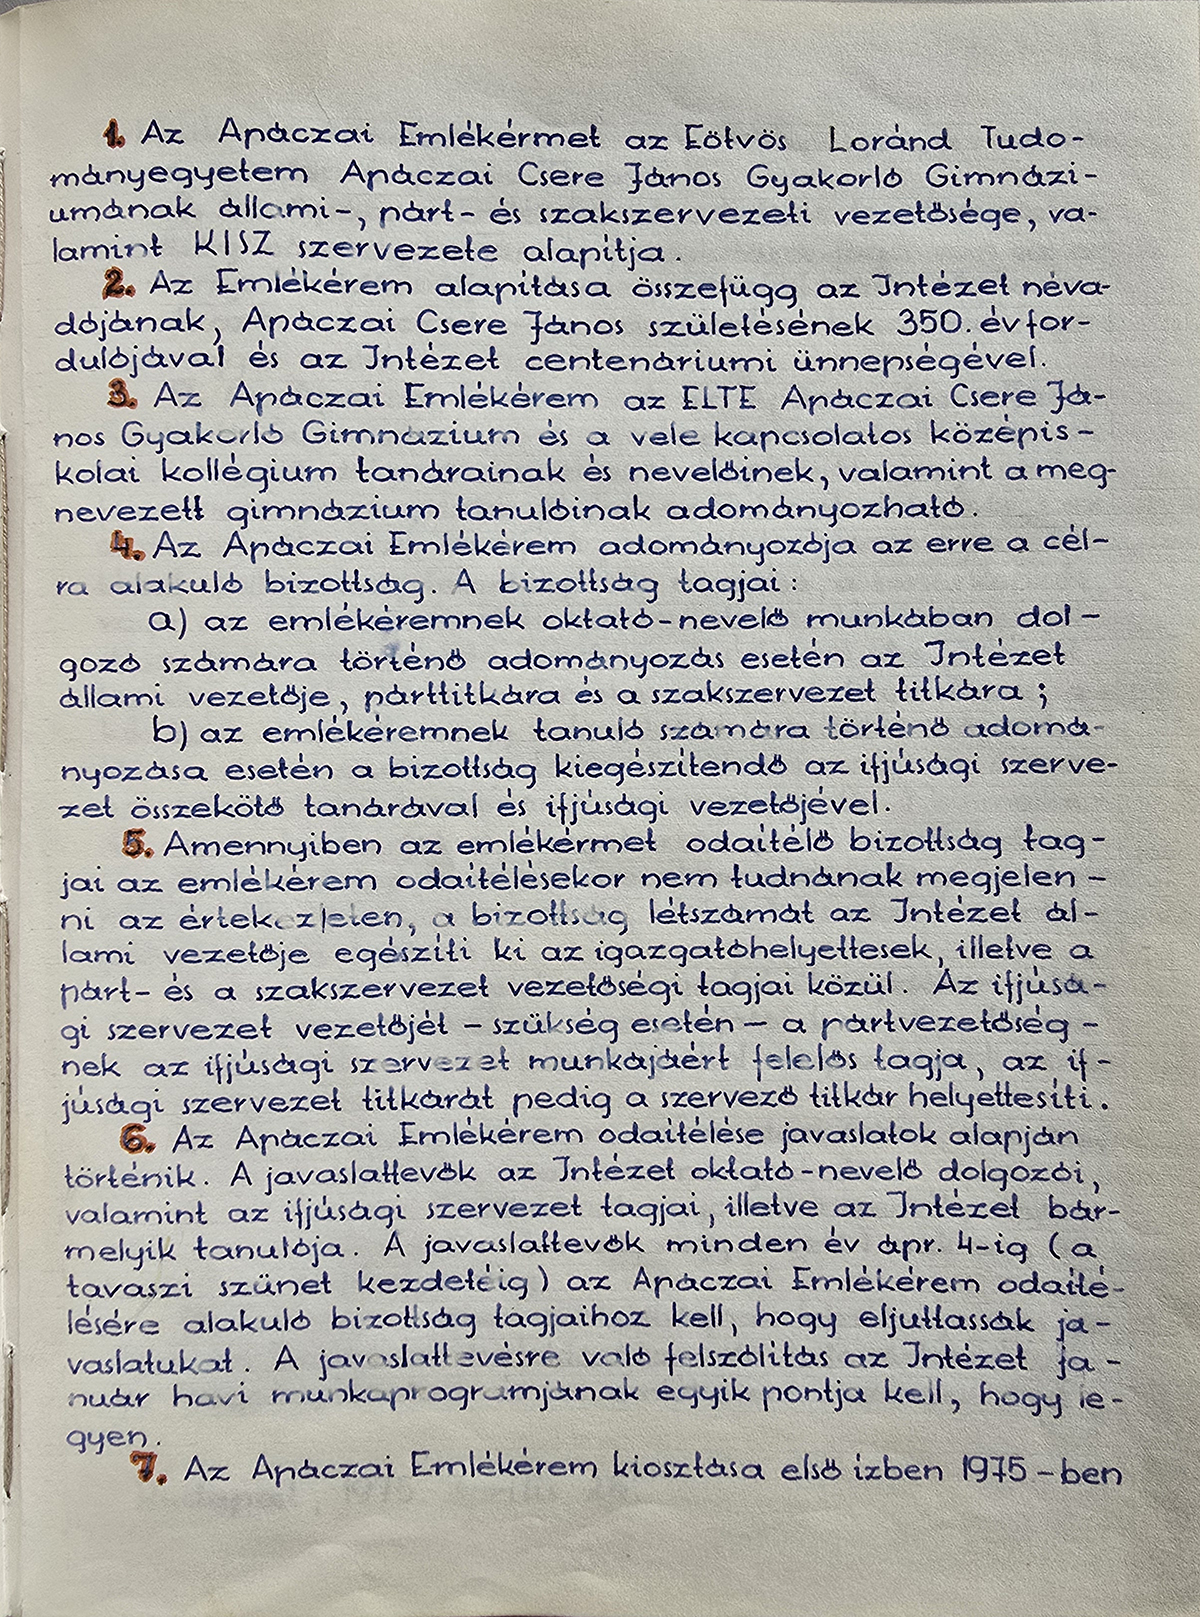 1. Az Apáczai Emlékérmet az Eötvös Loránd Tudo-
mányegyetem Apáczai Csere János Gyakorló Gimnázi-
umának állami-, párt- és szakszervezeti vezetősége, va-
lamint KISZ szervezete alapítja.
2. Az Emlékérem alapítása összefügg az Intézet néva-
dójának, Apáczai Csere János születésének 350. évfor-
dulójával és az Intézet centenáriumi ünnepségével.
3. Az Apáczai Emlékérem az ELTE Apáczai Csere Já-
nos Gyakorló Gimnázium és a vele kapcsolatos középis-
kolai kollégium tanárainak és nevelőinek, valamint a meg-
nevezett gimnázium tanulóinak adományozható.
4. Az Apáczai Emlékérem adományozója az erre a cél-
ra alakuló bizottság. A bizottság tagjai:
a) az emlékéremnek oktató-nevelő munkában dol-
gozó számára történő adományozás esetén az Intézet
állami vezetője, párttitkára és a szakszervezet titkára;
b) az emlékéremnek tanuló számára történő adomá-
nyozása esetén a bizottság kiegészítendő az ifjúsági szerve-
zet összekötő tanárával és ifjúsági vezetőjével.
5. Amennyiben az emlékérmet odaítélő bizottság tag-
jai az emlékérem odaítélésekor nem tudnának megjelen-
ni az értekezleten, a bizottság létszámát az Intézet ál-
lami vezetője egészíti ki az igazgatóhelyettesek, illetve a
párt- és a szakszervezet vezetőségi tagjai közül. Az ifjúsá-
gi szervezet vezetőjét – szükség esetén – a pártvezetőség-
nek az ifjúsági szervezet munkájáért felelős tagja, az if-
júsági szervezet titkárát pedig a szervező titkár helyettesíti.
6. Az Apáczai Emlékérem odaítélése javaslatok alapján
történik. A javaslattevők az Intézet oktató-nevelő dolgozói,
valamint az ifjúsági szervezet tagjai, illetve az Intézet bár-
melyik tanulója. A javaslattevők minden év ápr. 4-ig (a
tavaszi szünet kezdetéig) az Apáczai Emlékérem odaíté-
lésére alakuló bizottság tagjaihoz kell, hogy eljuttassák ja-
vaslatukat. A javaslattevésre való felszólítás az Intézet ja-
nuár havi munkaprogramjának egyik pontja kell, hogy le-
gyen.
7. Az Apáczai Emlékérem kiosztása első ízben 1975-ben